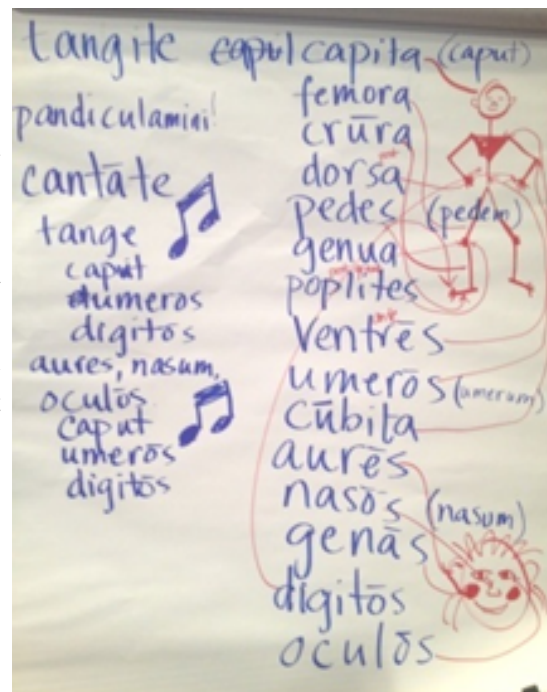 tangite capita (caput)
pandiculamini!
cantāte
tange
caput
umeros
digitōs
aures, nasum,
oculōs
caput
umerōs
digitōs
femora
crūra
dorsa
pedes (pedem)
genua
poplites
Ventrēs
umerōs (umerum)
cūbita
aurēs
nasōs (nasum)
genās
digitōs
oculōs